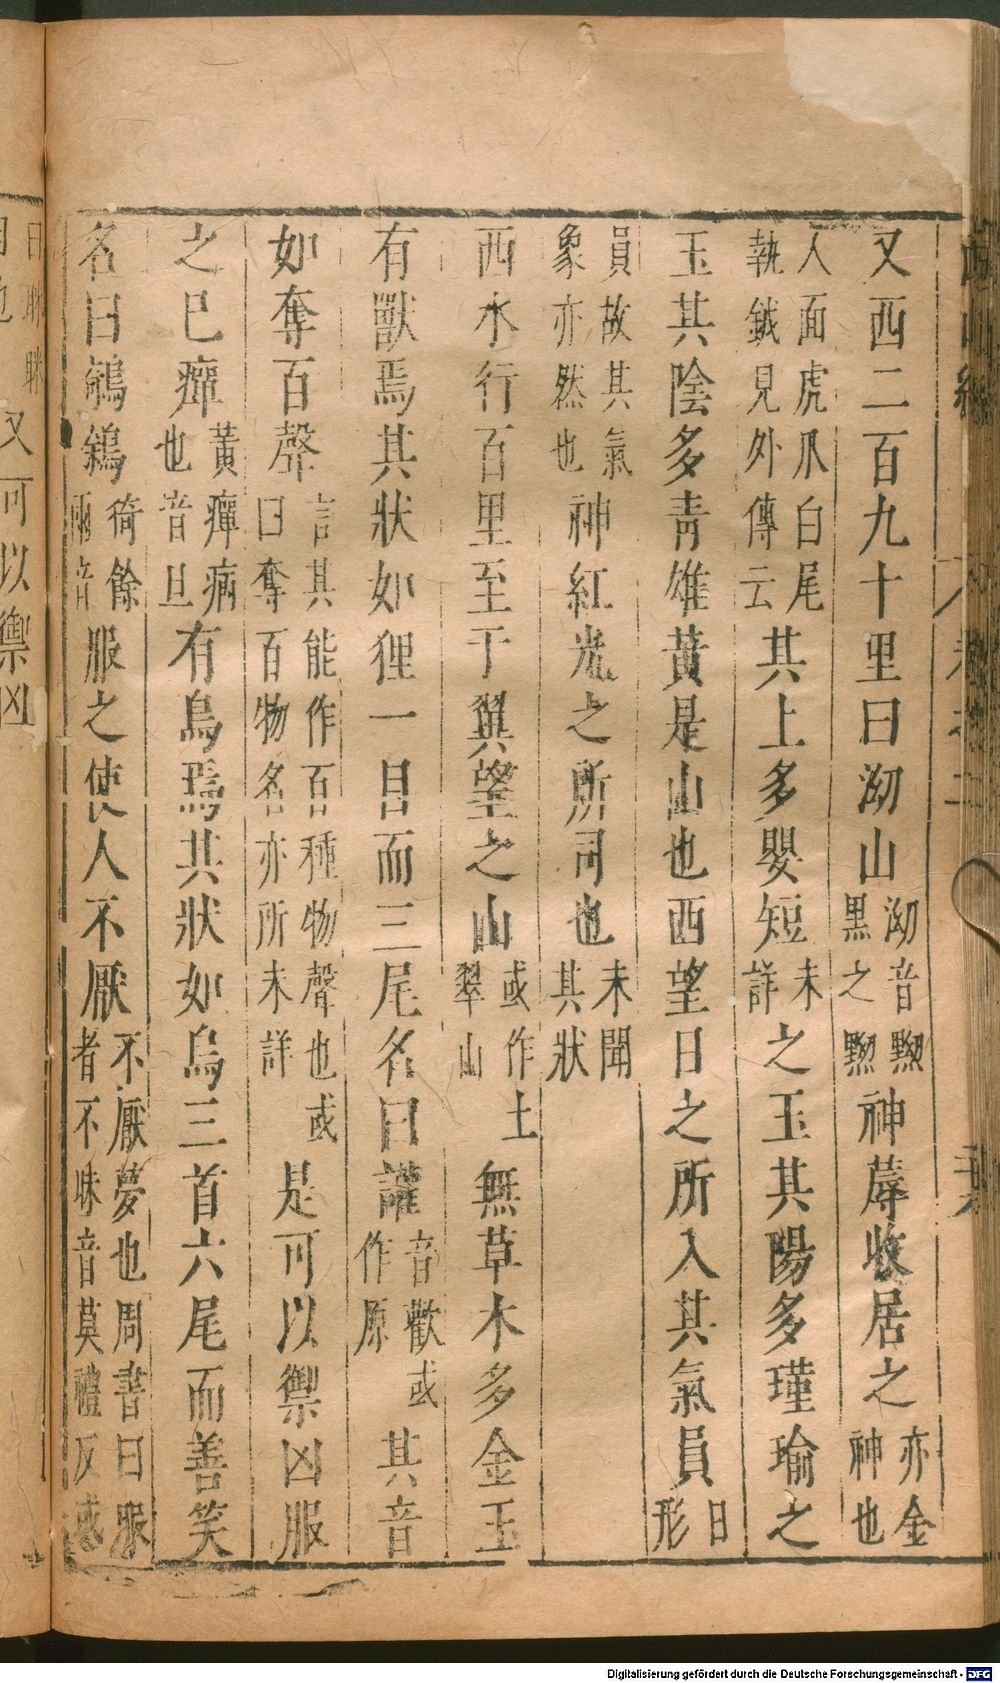 又西二百九十里曰泑山泑音黝黑之黝神蓐收居之亦金神也
人面虎爪白尾執鉞見外傳云其上多嬰短未詳之玉其陽多瑾瑜之
玉其陰多青雄黃是山也西望日之所入其氣員日形
員故其氣象亦然也神紅光之所司也未聞其狀
西水行百里至于翼望之山或作土翠山無草木多金玉
有獸焉其狀如狸一目而三尾名曰讙音歡或作原其音
如奪百聲言其能作百種物聲也或曰奪百物名亦所未詳是可以禦凶服
之已癉黃癉病也音旦有鳥焉其狀如烏三首六尾而善笑
名曰鵸鵌猗餘兩音服之使人不厭不厭夢也周書曰服者不眯音莫禮反或
曰眯眯
目也又可以禦凶
西山經
葉
Digitalisierung gefördert durch die Deutsche Forschungsgemeinschaft - DFG